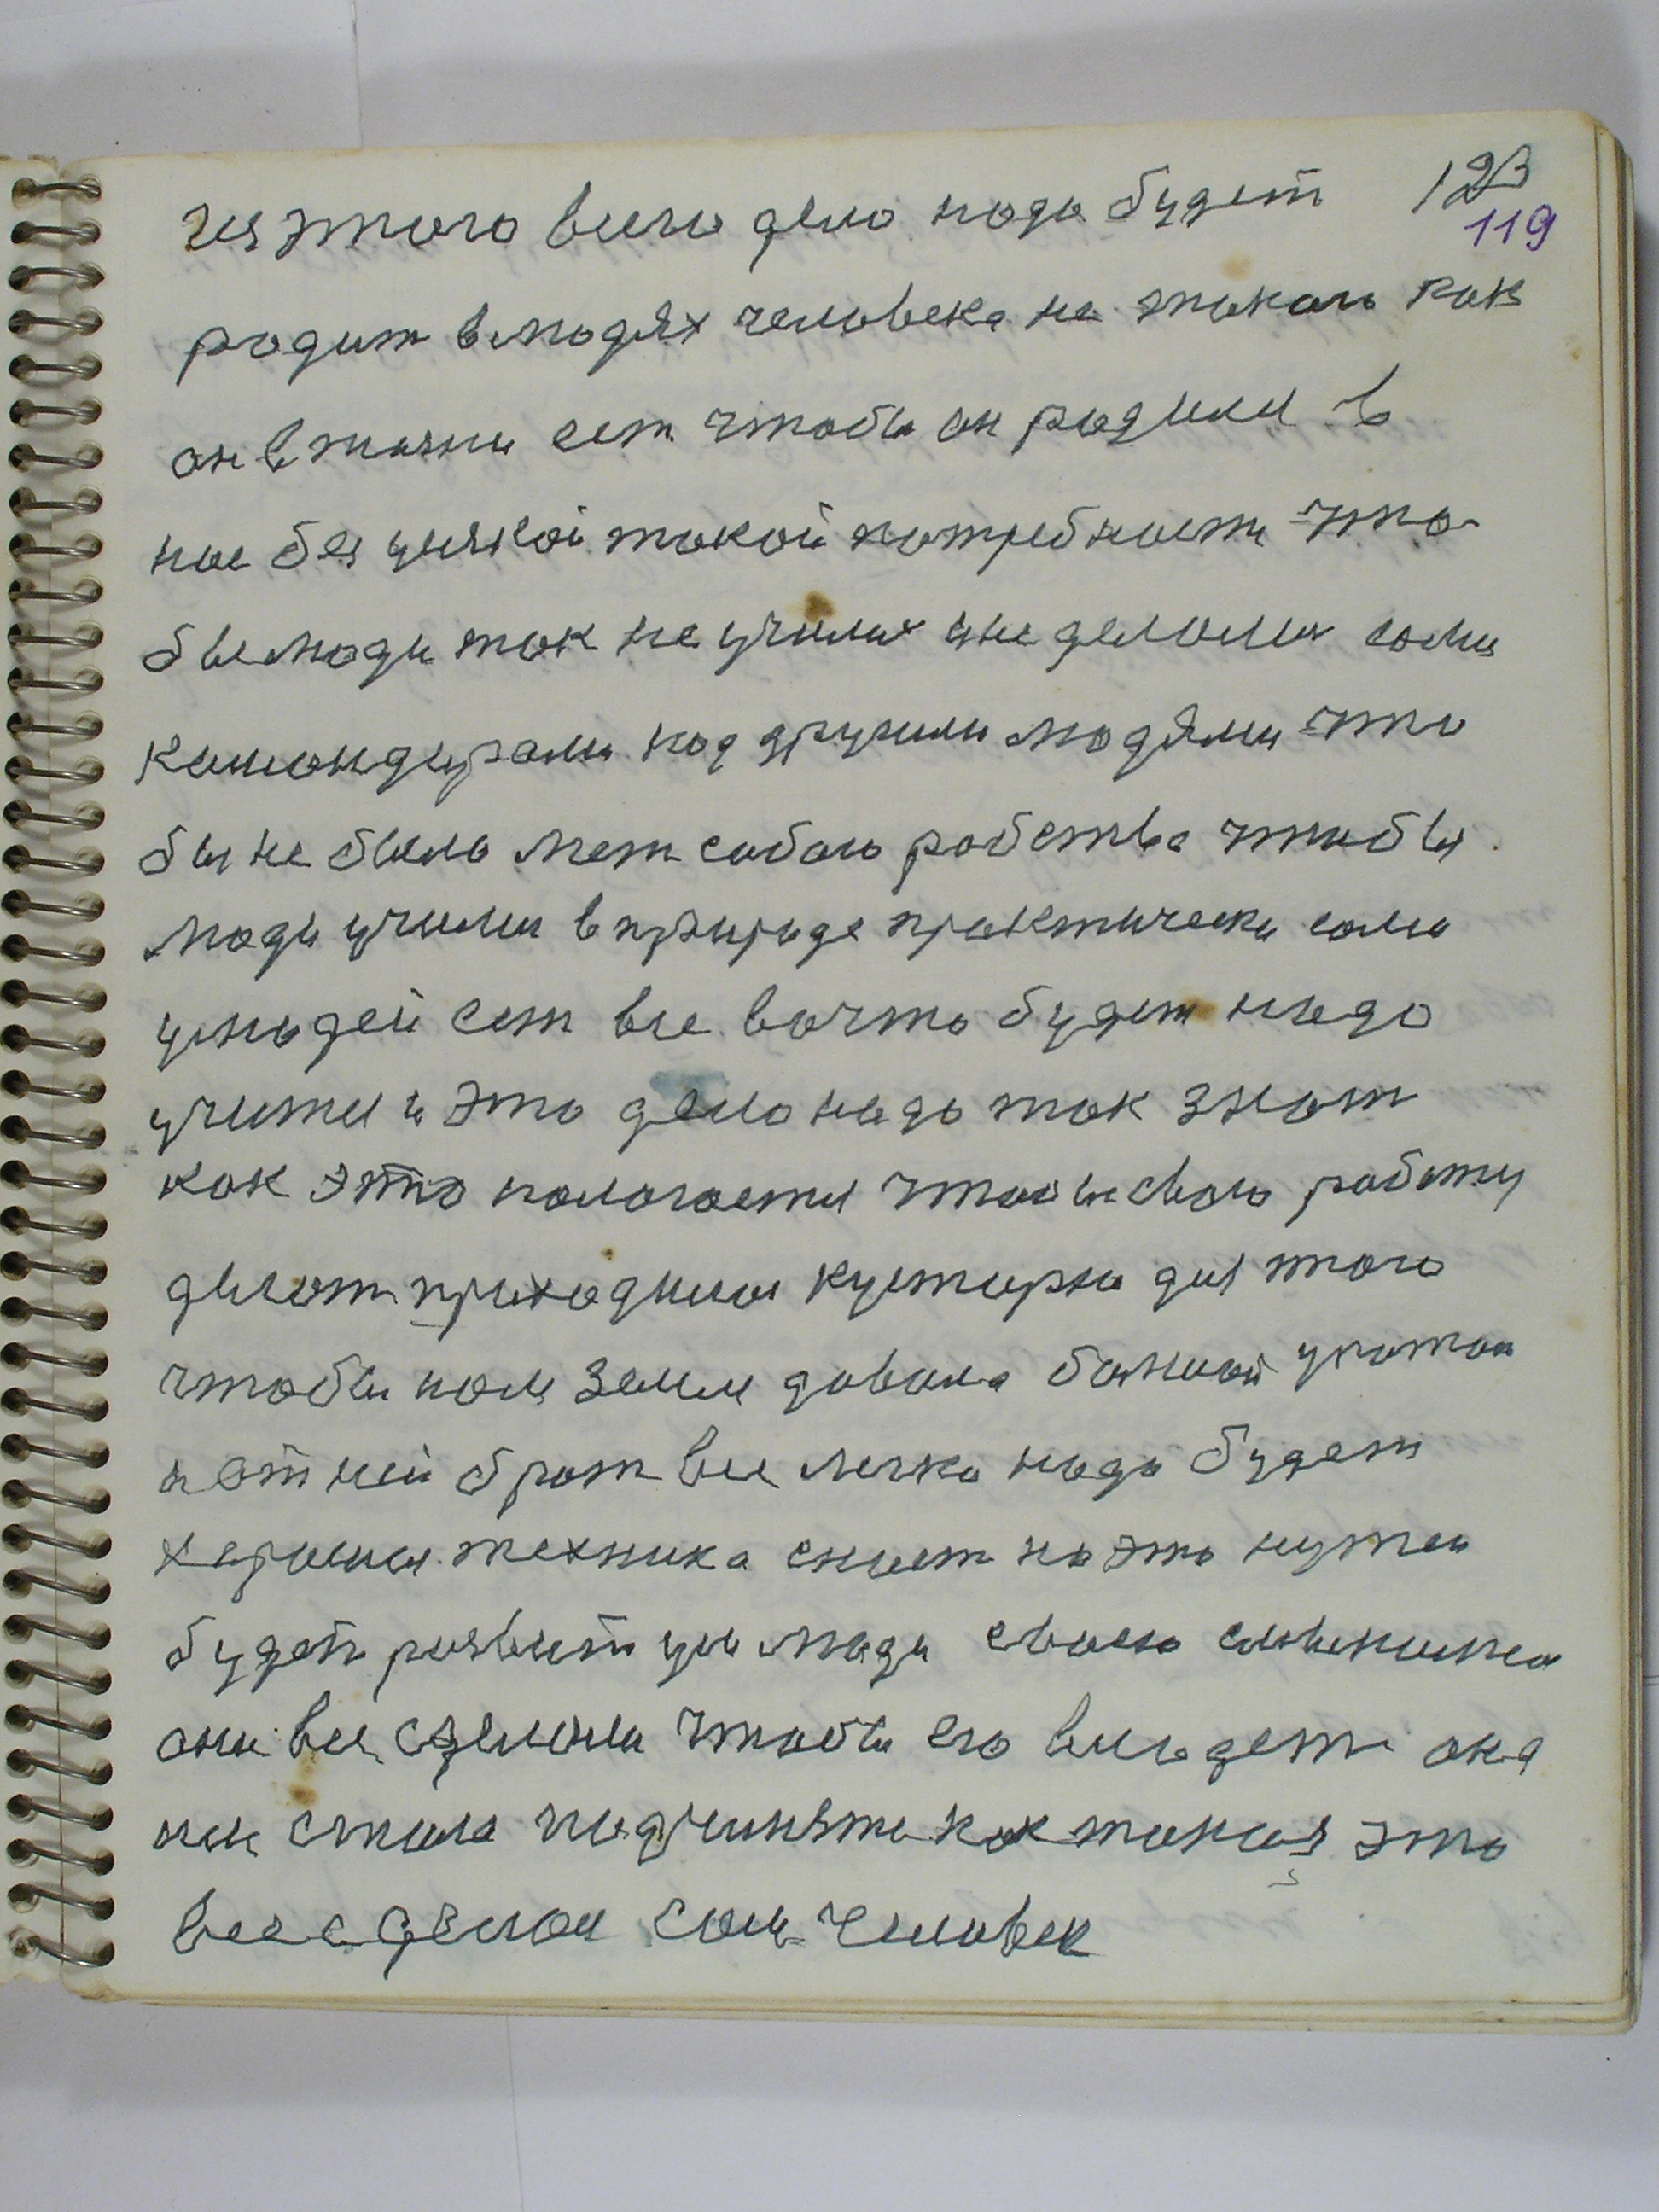 123
119
из этого всего дело надо будет
родит в людях человека не такого как
он в жизни ест чтобы он родился в
нас без усякой такой потребности что
бы люди так не учились и не делались сами
командирами над другими людями что
бы не было меж собою рабства чтобы
люди учились в природе практически сами
у людей ест все во что будет надо
учится и это дело надо так знат
как это пологается чтобы свою работу
делат приходился кустарно для того
чтобы нам земля давала большой урожай
и от ней брат все легко надо будет
хорошая техника на это нужен
будет развитий люди своею
они все сделали чтобы его она
им стала подчинятся как такая это
все сделал сам человек